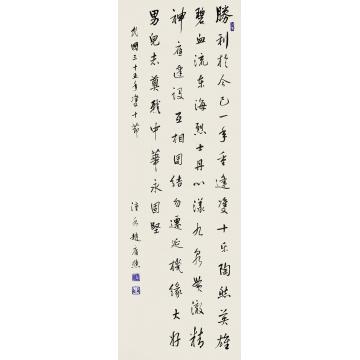 勝利於今已一年重逢雙十樂陶然英雄
碧血流東海烈士丹心漾九泉黃激精
神宜建設互相團結勿遷延機緣大好
男兒志奠我中華永固堅
民國三十五年雙十節